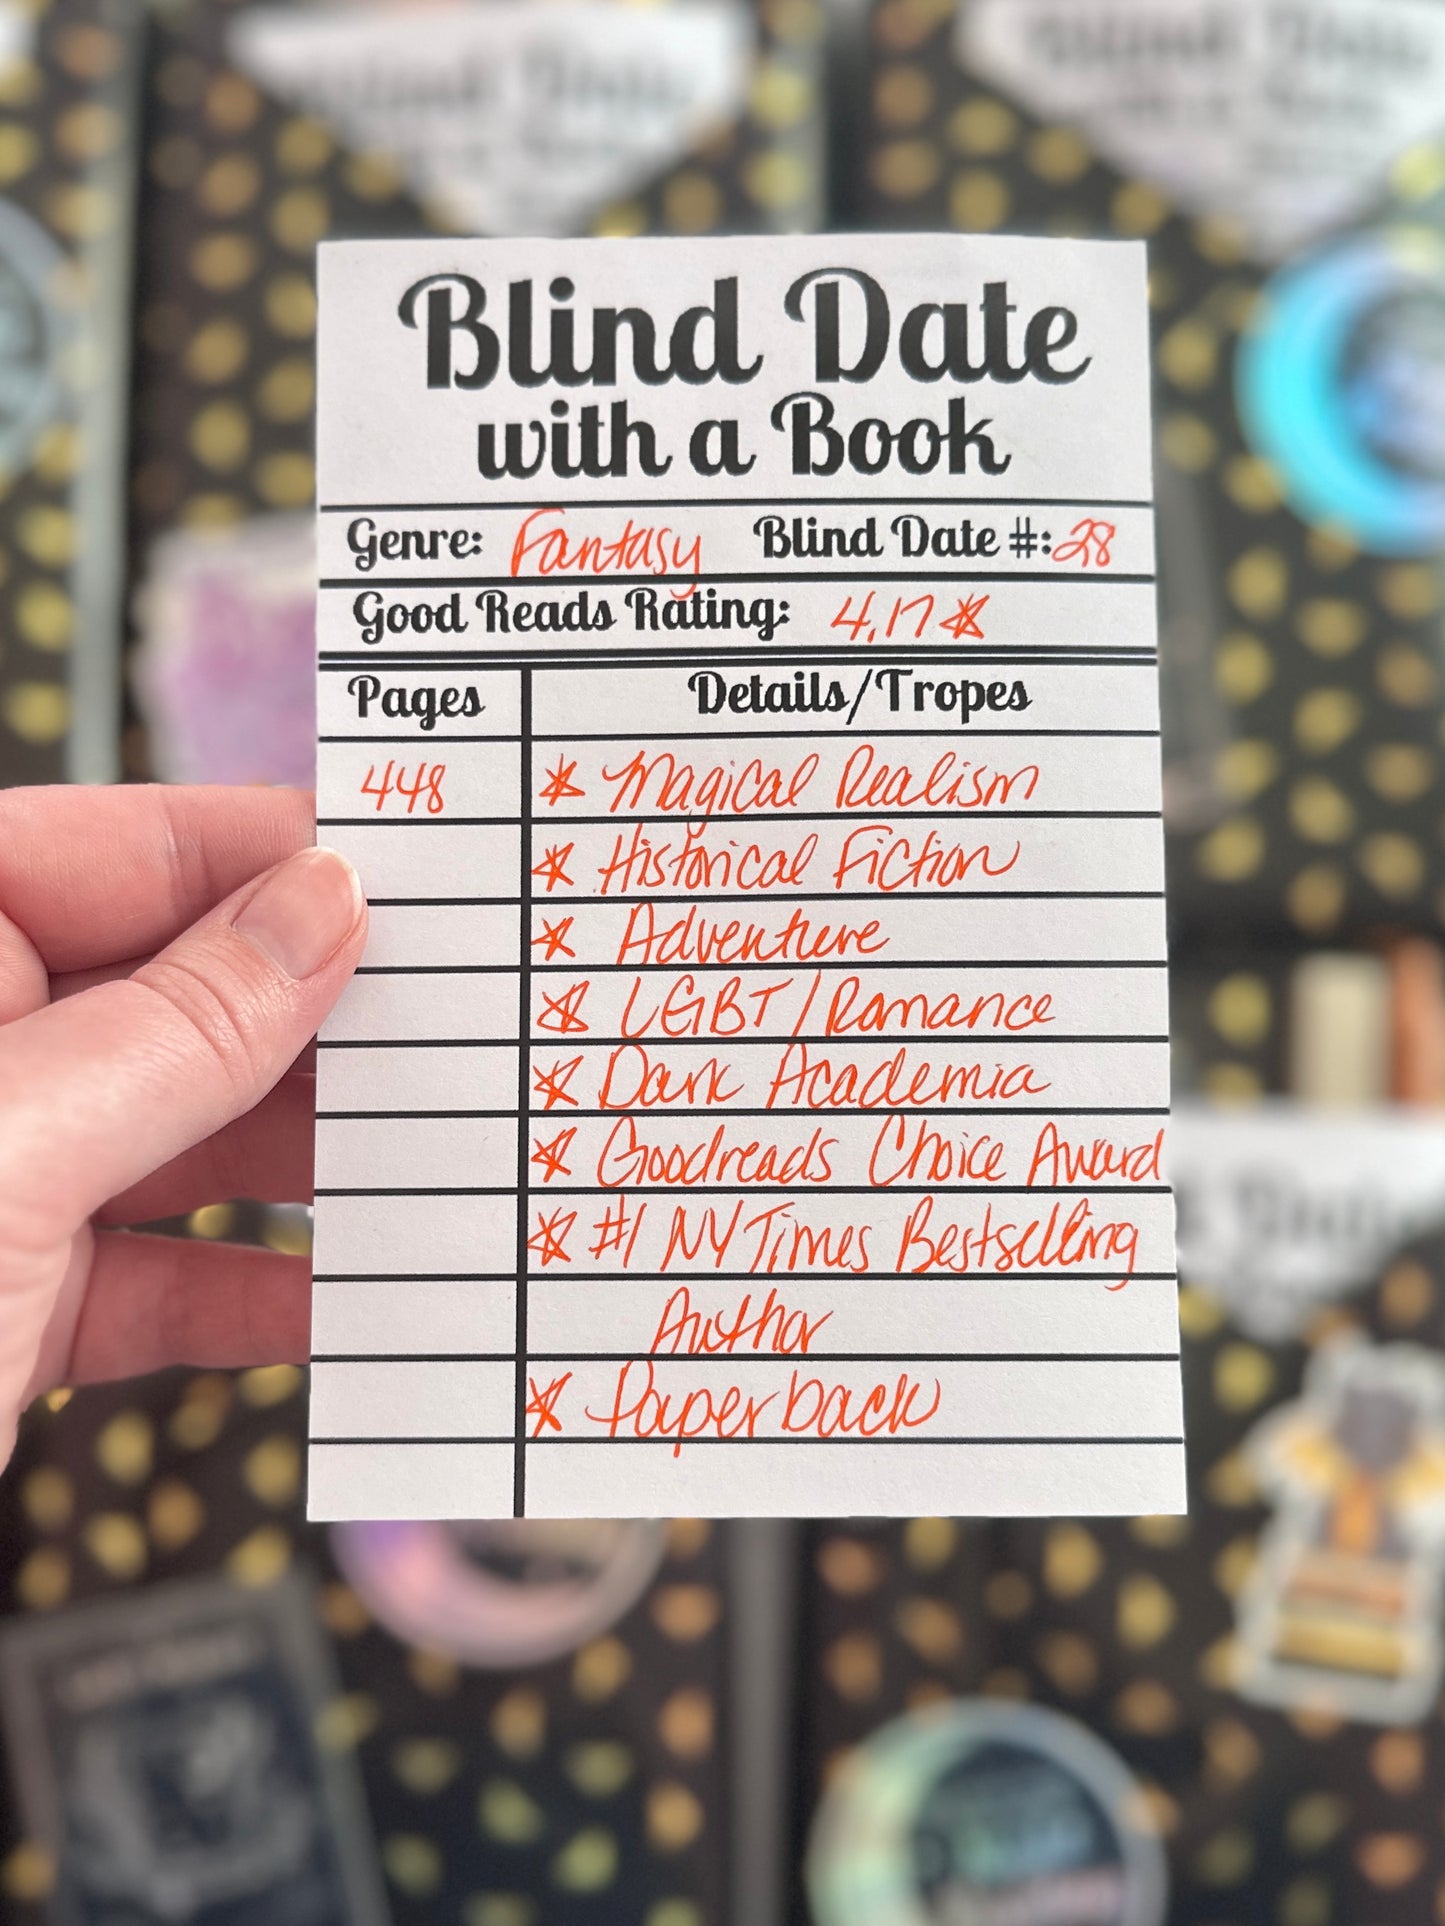 Blind Date
with a Book
Genre: Fantasy Blind Date #: 28
Good Reads Rating: 4.17 ☆
Pages Details/Tropes
448 ☆ Magical Realism
☆ Historical Fiction
☆ Adventure
☆ LGBT/Romance
☆ Dark Academia
☆ Goodreads Choice Award
☆ #1 NY Times Bestselling
Author
☆ Paperback